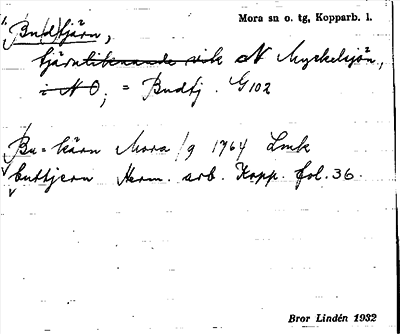 Mora sn o. tg, Kopparb. l.
Bu(d)tjärn,
tjärnliknande vik N Myckelsjön,
i N O; = Budtj. G102
Bu-kärn Mora 1/9 1764 Lmk
burtjern Herm. arb. Kopp. fol. 36.
Bror Lindén 1932